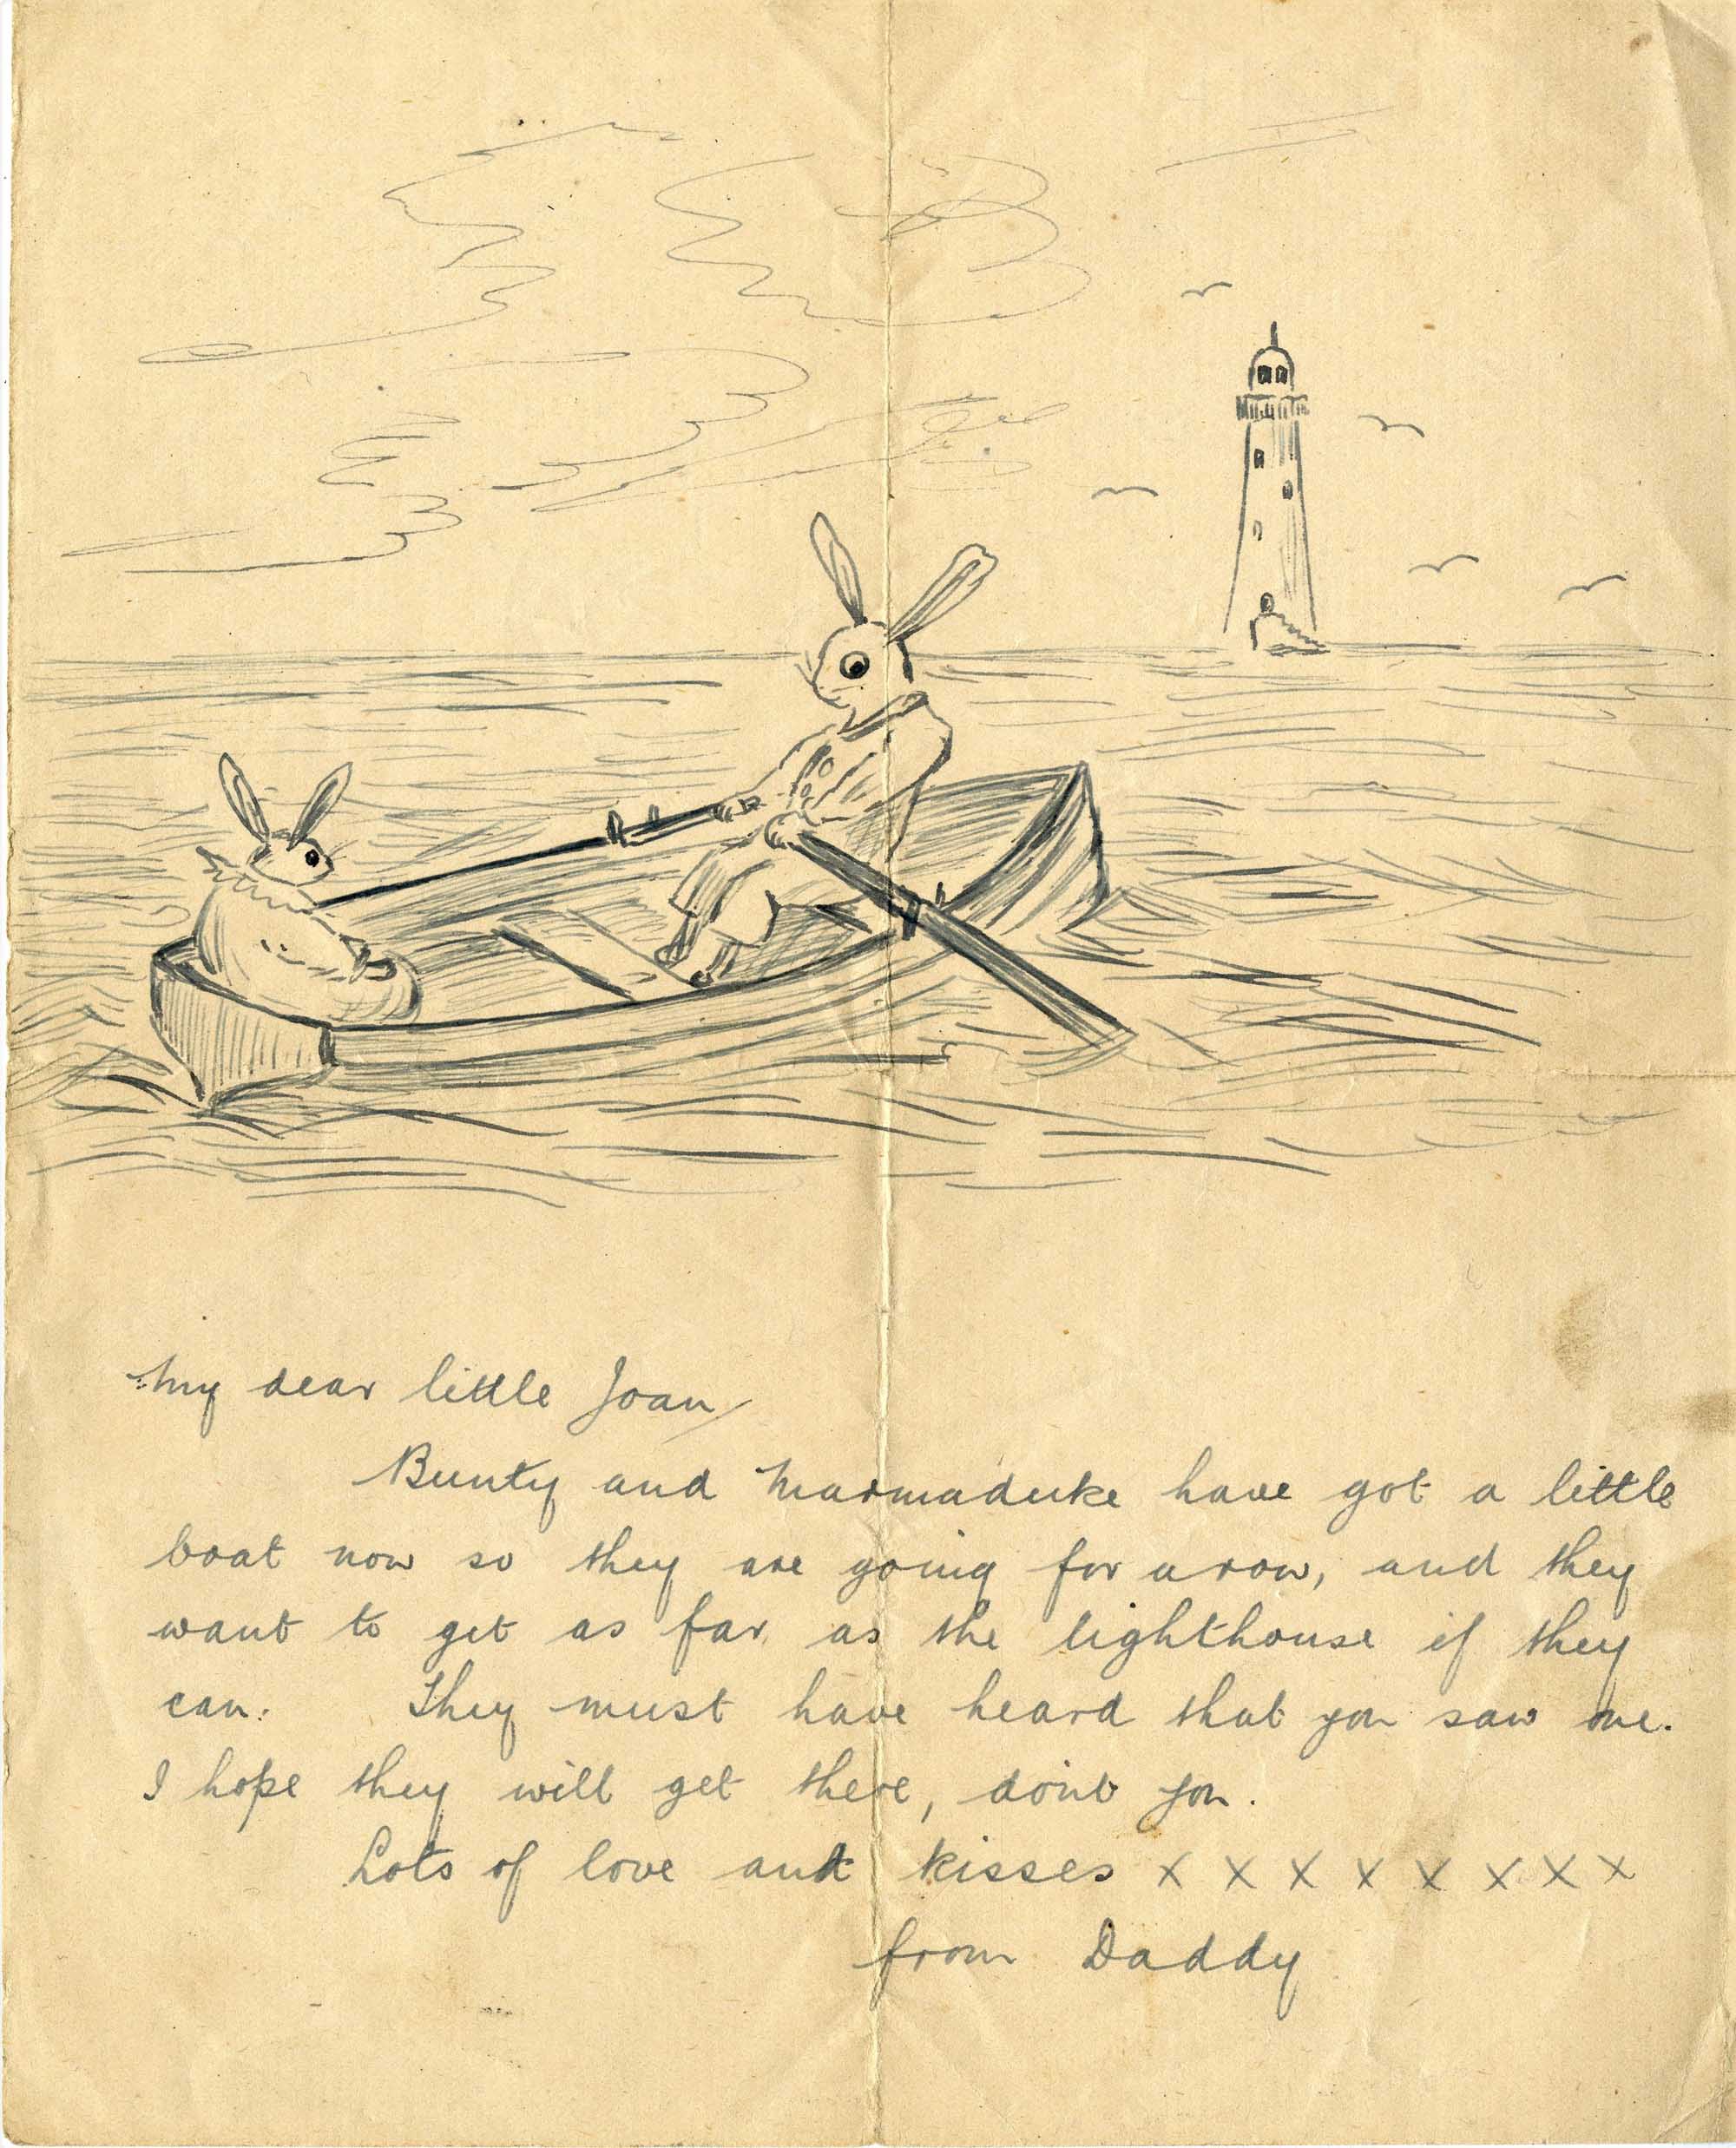 My dear little Joan/
Bunty and Marmaduke have got a little
boat now so they are going for a row, and they
want to get as far as the lighthouse if they
can. They must have heard that you saw one.
I hope they will get there, don't you.
Lots of love and kisses x x x x x x x x
from Daddy